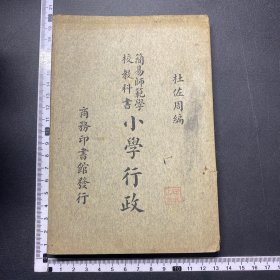 杜佐周編
簡易師範學
校教科書
小學行政
商務印書館發行